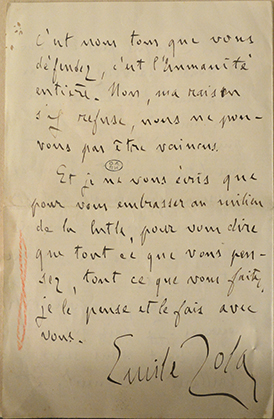 C'est nous tous que vous
défendez, c'est l'humanité
entière. Non, ma raison
s'y refuse, nous ne pou-
vons pas être vaincus.
Et je ne vous écris que
pour vous embrasser au milieu
de la lutte, pour vous dire
que tout ce que vous pen-
sez, tout ce que vous faites,
je le pense et le fais avec
vous.
Emile Zola